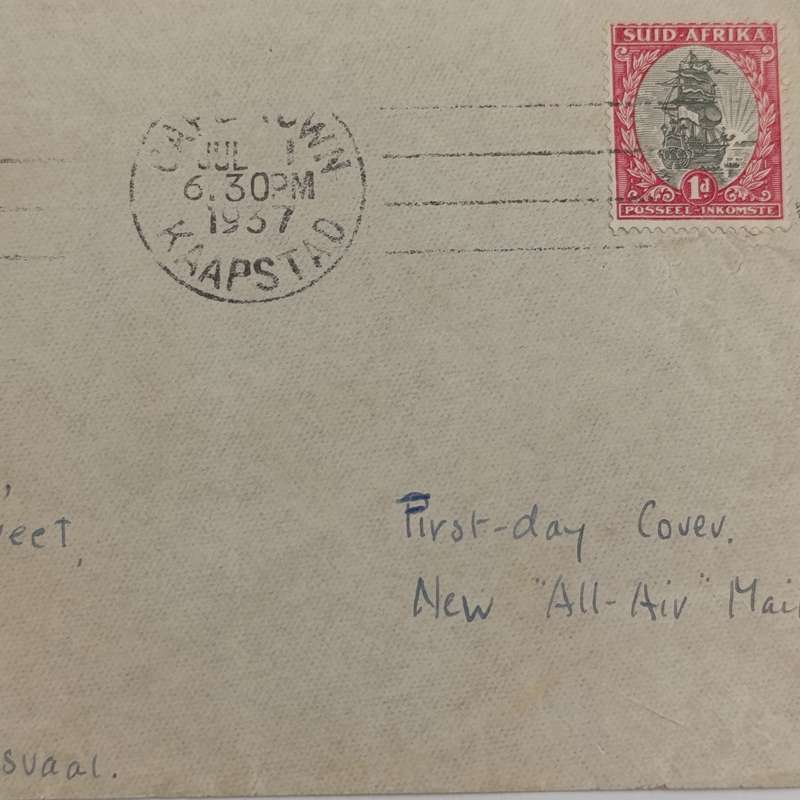 SUID-AFRIKA
1d
POSSEEL-INKOMSTE
CAPE TOWN
JUL 1
6.30PM
1937
KAAPSTAD
First-day Cover.
New "All-Air" Mail
reet,
svaal.